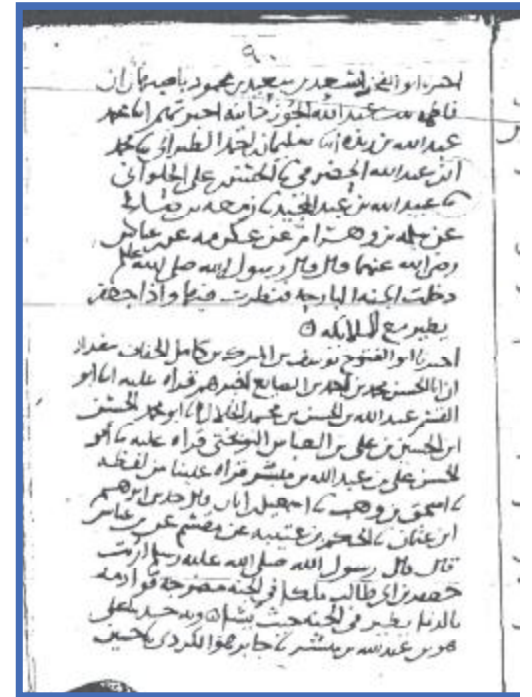 ٩٠
اخبرنا ابو الفخر اسعد بن سعيد بن محمود باصبهان ان
فاطمه بنت عبد الله الجوزدانيه اخبرتهم ابنا محمد
عبد الله بن ريذه ابنا سليمان احمد الطبراني نا محمد
عبد الله الحضرمي نا الحسن بن علي الحلواني
نا عبيد الله بن عبد المجيد نا زمعه بن صالح
عن سلمه بن وهرام عن عكرمه عن ابن عباس
رضي الله عنهما قال قال رسول الله صلى الله عليه وسلم
دخلت الجنه البارحه فنظرت فيها واذا جعفر
يطير مع الملائكه
اخبرنا ابو الفتوح يوسف بن المبارك بن كامل الخفاف ببغداد
ان ابا الحسن محمد بن احمد بن الصايغ اخبرهم قراه عليه ابنا ابو
عبد الله بن الحسن بن محمد الخلال ابنا ابو محمد الحسن
ابن الحسين بن علي بن العباس النوبختي قراه عليه نا ابو
الحسن علي بن عبد الله بن مبشر قراه علينا من لفظه
نا اسحق بن وهب نا اسمعيل ابان بن ابرهيم
ابن عثمان نا الحكم بن عتيبه عن مقسم عن ابن عباس
قال قال رسول الله صلى الله عليه وسلم اريت
جعفر بن ابي طالب ملكا في الجنه مضرجه قوادمه
بالدما يطير في الجنه حيث يشا وبه حدثنا علي
هو بن عبد الله بن مبشر نا جابر هو الكردي نا حسين